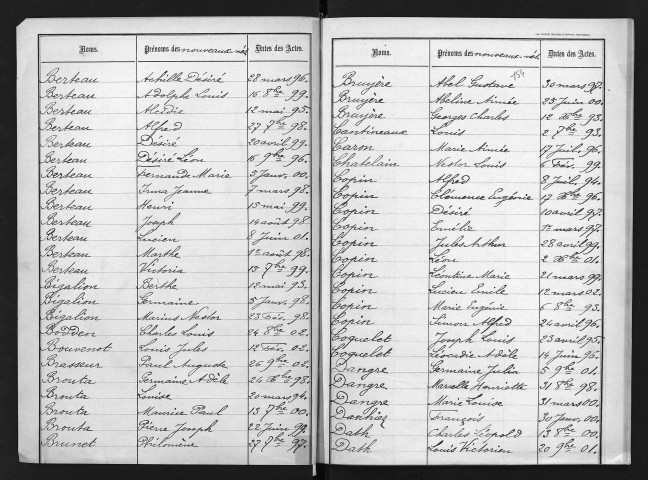 Noms. Prénoms des nouveaux-nés. Dates des Actes.
Berteau Achille Désiré 28 mars 96.
Berteau Adolphe Louis 16 8bre 99.
Berteau Alcidie 12 mai 95.
Berteau Alfred 27 7bre 98.
Berteau Désiré 20 avril 99.
Berteau Désiré Léon 16 9bre 96.
Berteau Fernande Marie 5 Janv. 00.
Berteau Irma Jeanne 7 mars 98.
Berteau Henri 15 mai 99.
Berteau Joseph 14 août 98.
Berteau Lucien 8 Juin 01.
Berteau Marthe 1er août 98.
Berteau Victoria 13 7bre 99.
Bigalion Berthe 12 mai 93.
Bigalion Germaine 5 Janv. 98.
Bigalion Marius Nestor 23 Fév. 98.
Bodden Charles Louis 24 8bre 02.
Bouvenot Louis Jules 12 Fév. 02.
Brasseur Paul Auguste 26 9bre 02.
Brouta Germaine Adèle 24 Xbre 98.
Brouta Louise 20 mars 94.
Brouta Maurice Paul 13 7bre 00.
Brouta Pierre Joseph 22 Juin 99.
Brunet Philomène 27 7bre 97.
Noms. Prénoms des nouveaux-nés. Dates des Actes.
Bruyère Abel Gustave 30 mars 97.
Bruyère Abeline Aimée 25 Juin 00.
Bruyère Georges Charles 12 Xbre 93.
Cantineaux Louis 2 7bre 93.
Caron Marie Aimée 17 Juil. 96.
Chatelain Nestor Louis 6 Fév. 99.
Copin Alfred 8 Juil. 94.
Copin Clémence Eugénie 17 Xbre 96.
Copin Désiré 10 avril 97.
Copin Emilie 1er mars 97.
Copin Jules Arthur 28 avril 99.
Copin Léon 2 Xbre 01.
Copin Léontine Marie 21 mars 99.
Copin Lucien Emile 12 mars 02.
Copin Marie Eugénie 6 8bre 93.
Copin Simon Alfred 24 avril 96.
Coquelet Joseph Louis 23 avril 95.
Coquelet Léocadie Adèle 14 Juin 96.
Dangre Germaine Julia 5 9bre 01.
Dangre Marcelle Henriette 31 8bre 98.
Dangre Marie Louise 31 mars 00.
Danhiez François 30 Janv. 00.
Dath Charles Léopold 13 8bre 00.
Dath Louis Victorien 20 9bre 01.